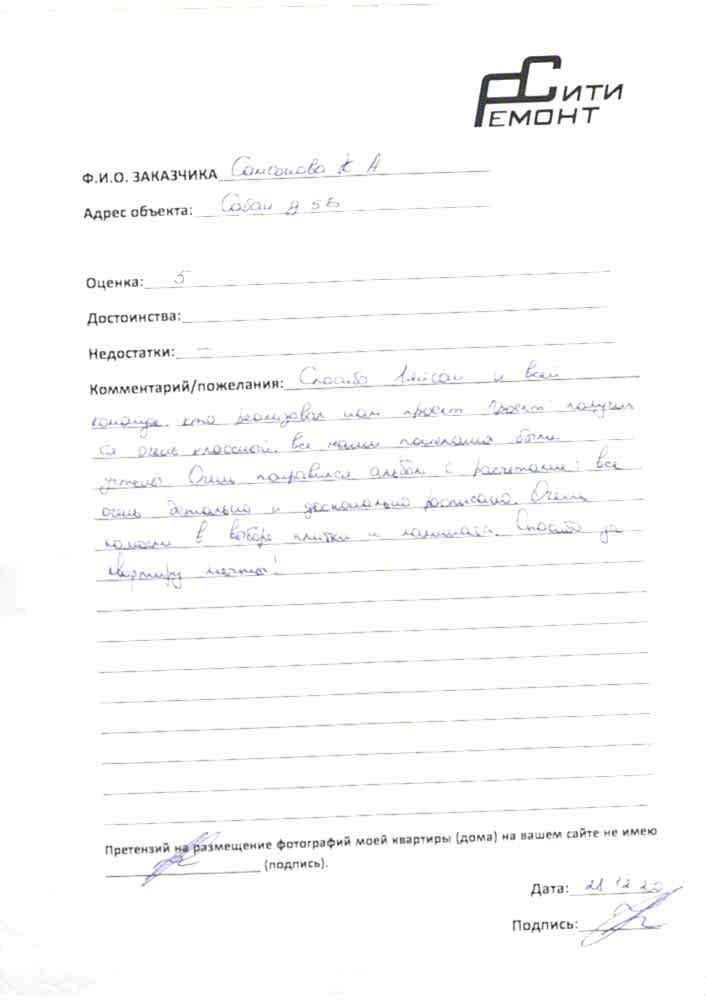 СИТИ
РЕМОНТ
Ф.И.О. ЗАКАЗЧИКА Самсонова К А
Адрес объекта: Сабан д 5Б
Оценка: 5
Достоинства:
Недостатки: —
Комментарий/пожелания: Спасибо Ляйсан и всей
команде, кто реализовал нам проект. Проект получил
ся очень классный, все наши пожелания были
учтены. Очень понравился альбом с расчетами: все
очень детально и досконально расписано. Очень
помогли в выборе плитки и ламината. Спасибо за
квартиру мечты!
Претензий на размещение фотографий моей квартиры (дома) на вашем сайте не имею
(подпись).
Дата: 28 12 20
Подпись: